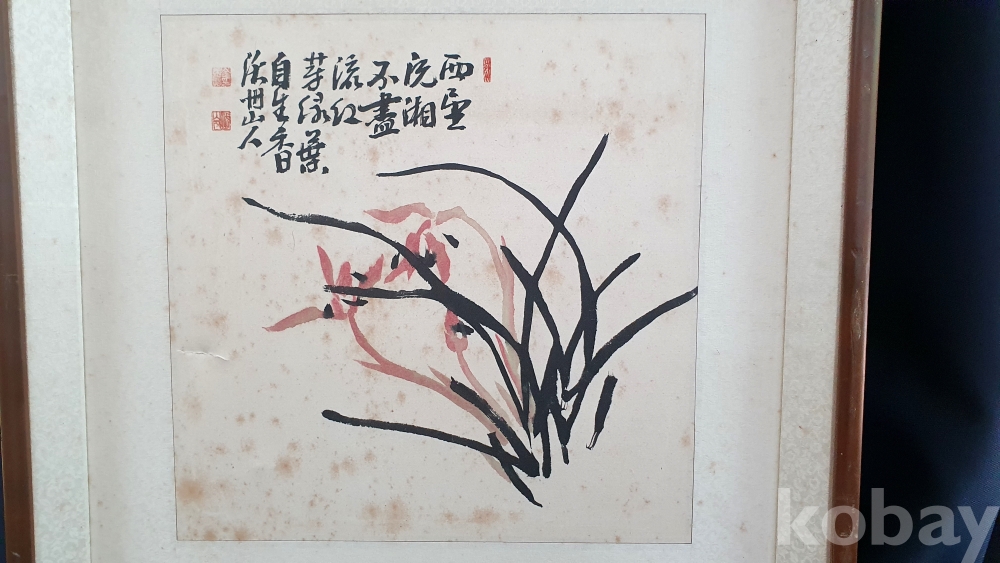 雨
沅湘
不盡
流紅
芽綠葉
自生香
州山人
kobay